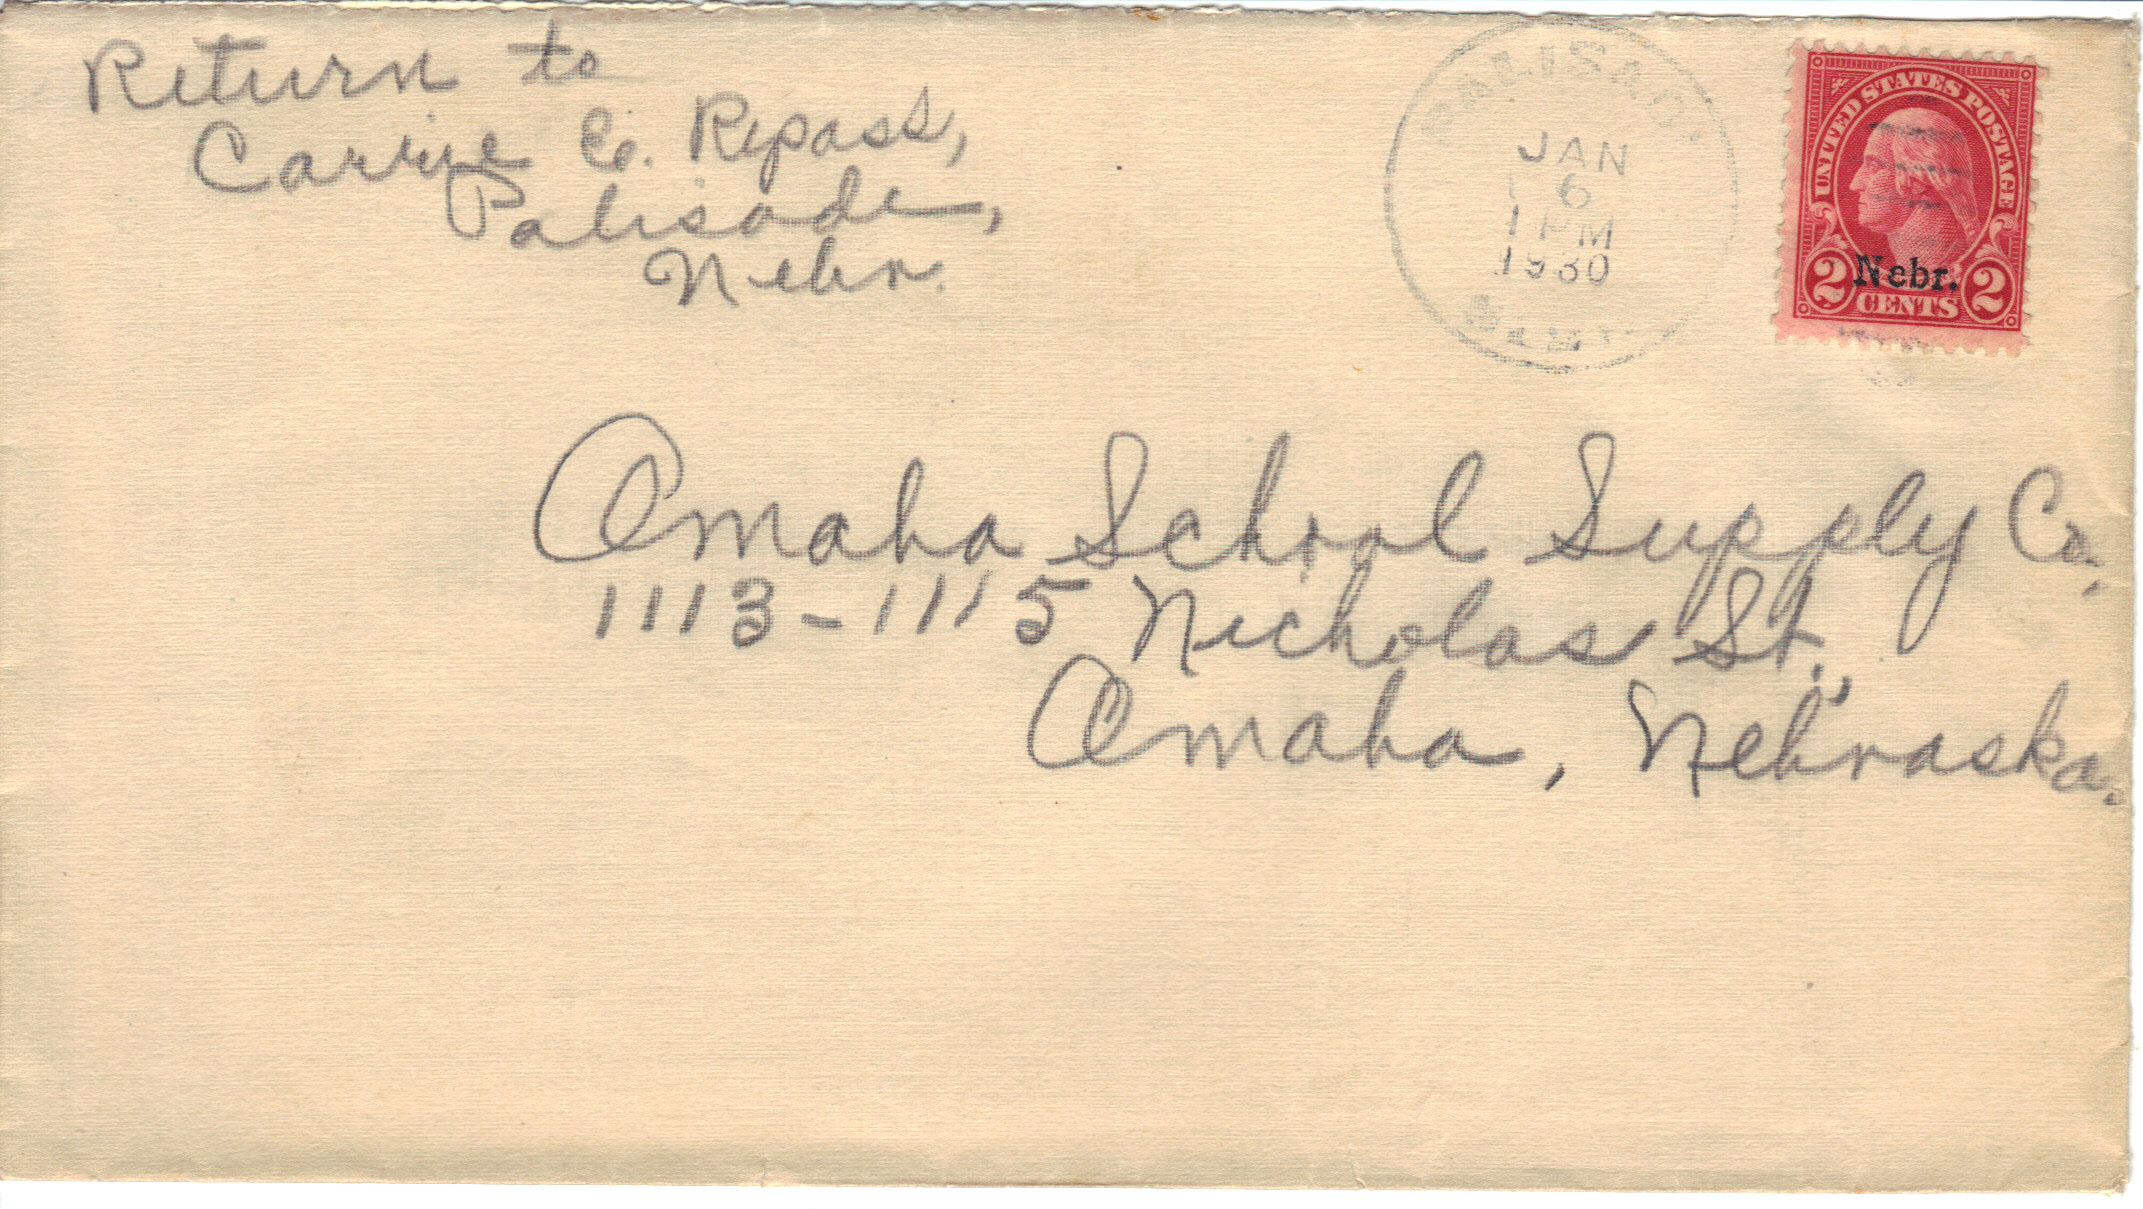 Return to
Carrye E. Repass,
Palisade,
Nebr.
PALISADE
JAN
6
1 PM
1930
NEBR.
UNITED STATES POSTAGE
Nebr.
2 CENTS 2
Omaha School Supply Co.,
1113-1115 Nicholas St.,
Omaha, Nebraska.